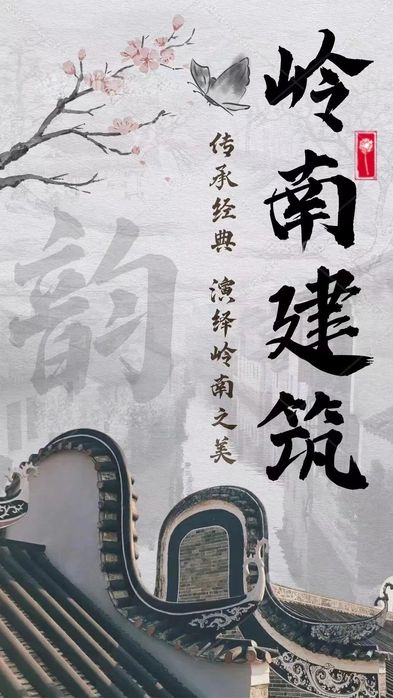 岭南建筑
传承经典 演绎岭南之美
韵